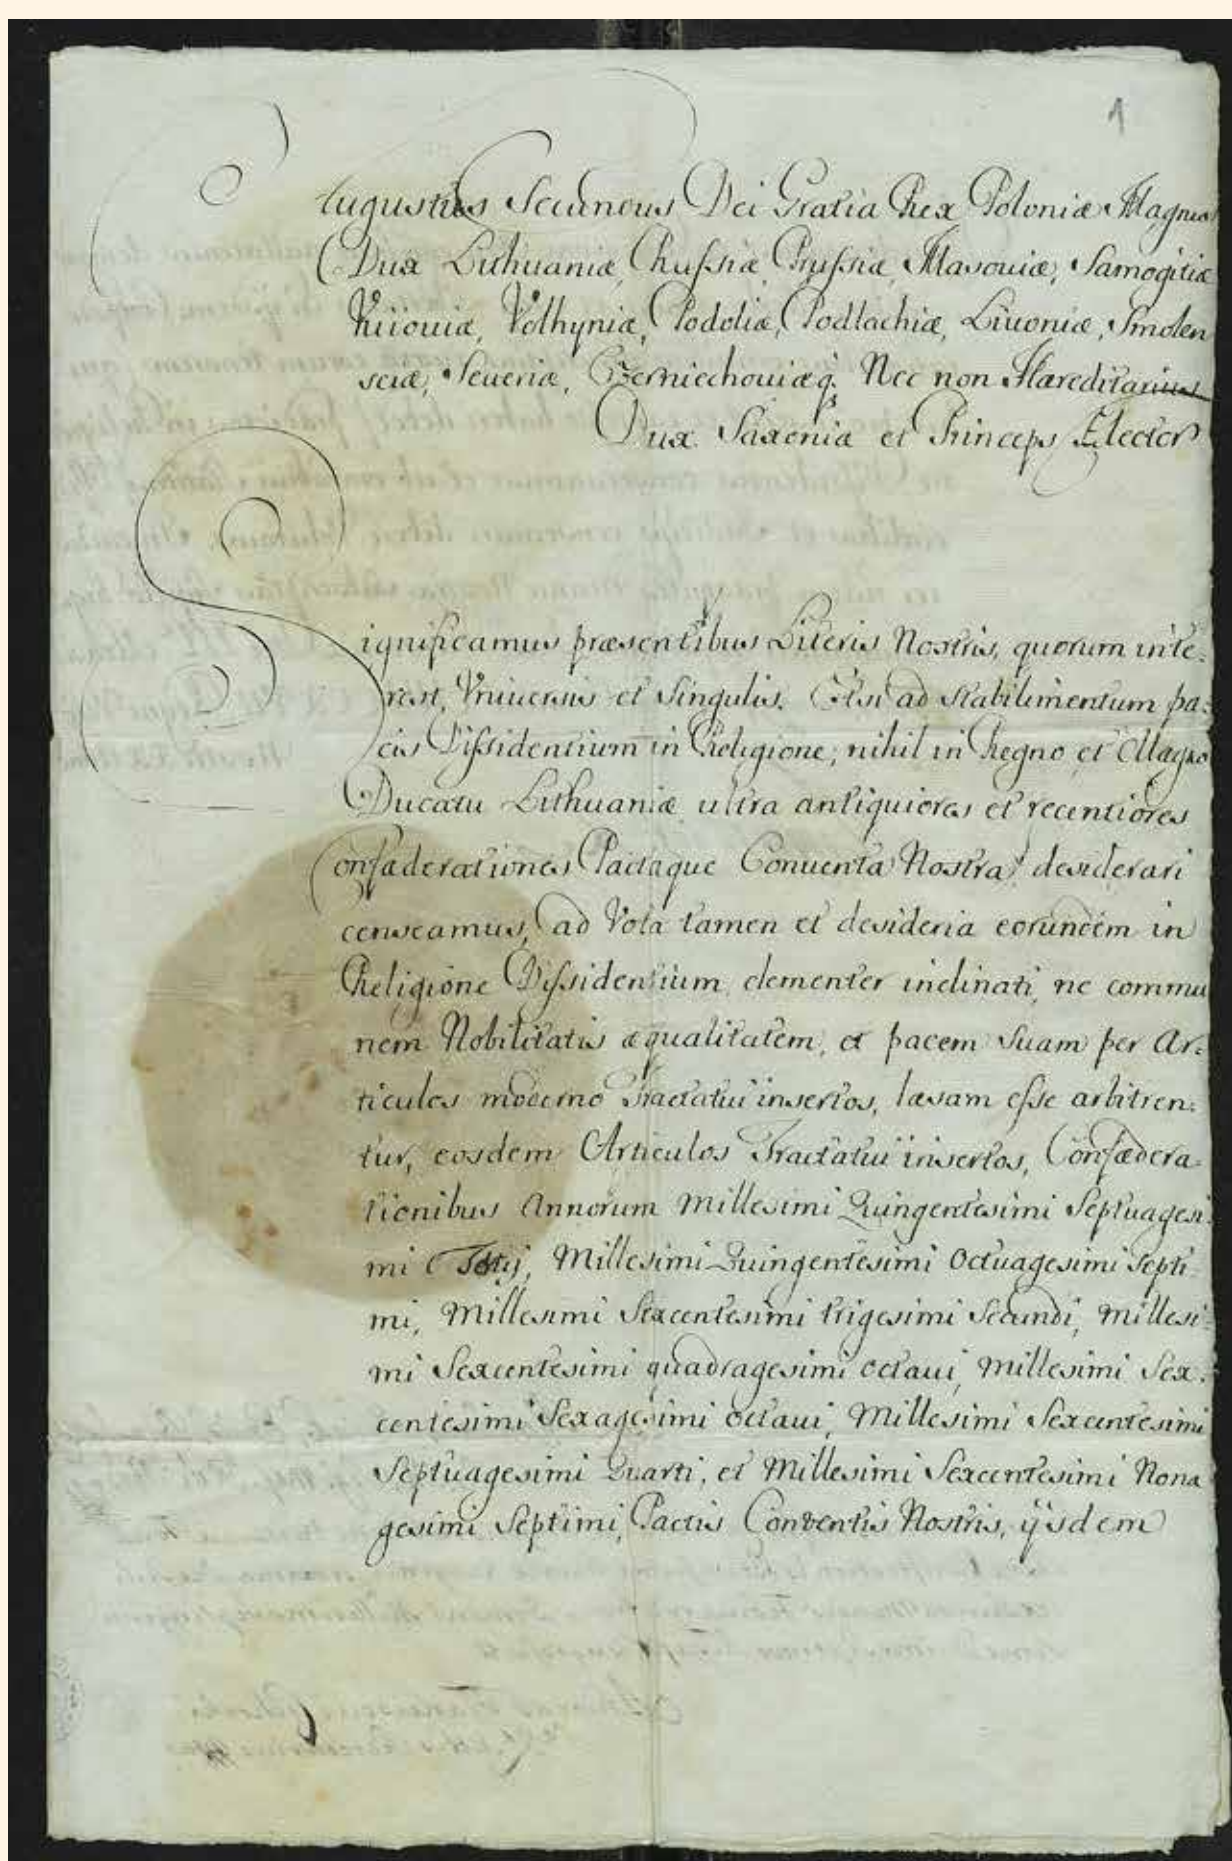 1
Augustus Secundus Dei Gratia Rex Poloniæ Magnus
Dux Lithuaniæ, Russiæ, Prussiæ, Masouiæ, Samogitiæ
Kiiouiæ, Volhyniæ, Podoliæ, Podlachiæ, Liuoniæ, Smolen
sciæ, Seueriæ, Czerniechouiæq. Nec non Hæreditarius
Dux Saxoniæ et Princeps Elector
Significamus præsentibus Literis Nostris, quorum inte-
rest, Vniuersis et Singulis. Etsi ad stabilimentum pa-
cis Dissidentium in Religione, nihil in Regno et Magno
Ducatu Lithuaniæ ultra antiquiores et recentiores
Confæderationes Pactaque Conuenta Nostra desiderari
censeamus, ad Vota tamen et desideria eorundem in
Religione Dissidentium clementer inclinati, ne commu
nem Nobilitatis æqualitatem, et pacem suam per Ar-
ticulos moderno Tractatui insertos, læsam esse arbitren-
tur, eosdem Articulos Tractatui insertos, Confædera-
tionibus Annorum Millesimi Quingentesimi Septuagesi-
mi Tertij, Millesimi Quingentesimi Octuagesimi Septi-
mi, Millesimi Sexcentesimi trigesimi Secundi, Millesi-
mi Sexcentesimi quadragesimi octaui, Millesimi Sex-
centesimi Sexagesimi octaui, Millesimi Sexcentesimi
Septuagesimi Quarti, et Millesimi Sexcentesimi Nona
gesimi Septimi, Pactis Conventis Nostris, ijsdem